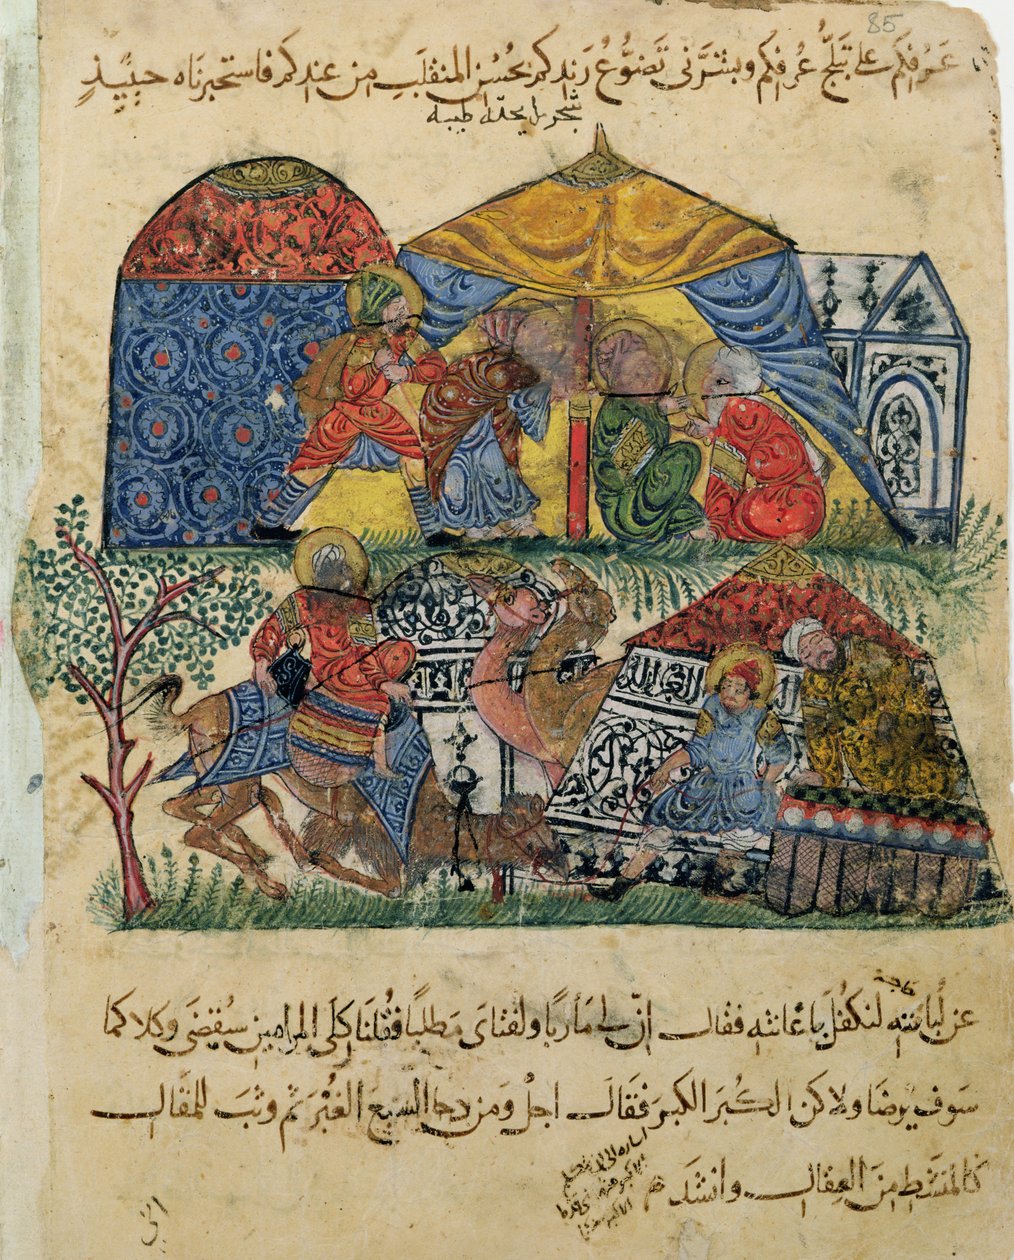 85
عَرْفكم على تبلج عُرفكم وبشرنى تَضَوُّعُ رَندكم بحُسْن المنقلَب من عندكم فاستخبرناه حينئذٍ
شجر رايحته طيبه
حاجة
عن لُبانته لنكفل باعانته فقال إنّ لى مأربًا ولفتاى مَطلبًا فقلنا كلى المرامين سيُقضَى وكلاكما
سَوف يُرضَا ولاكن الكُبرَ الكبرَ فقال اجلْ ومَن دحا السبع الغُبْرَ ثم وثبَ للمقال
كالمنشَط مِنَ العِقال وانشدَ